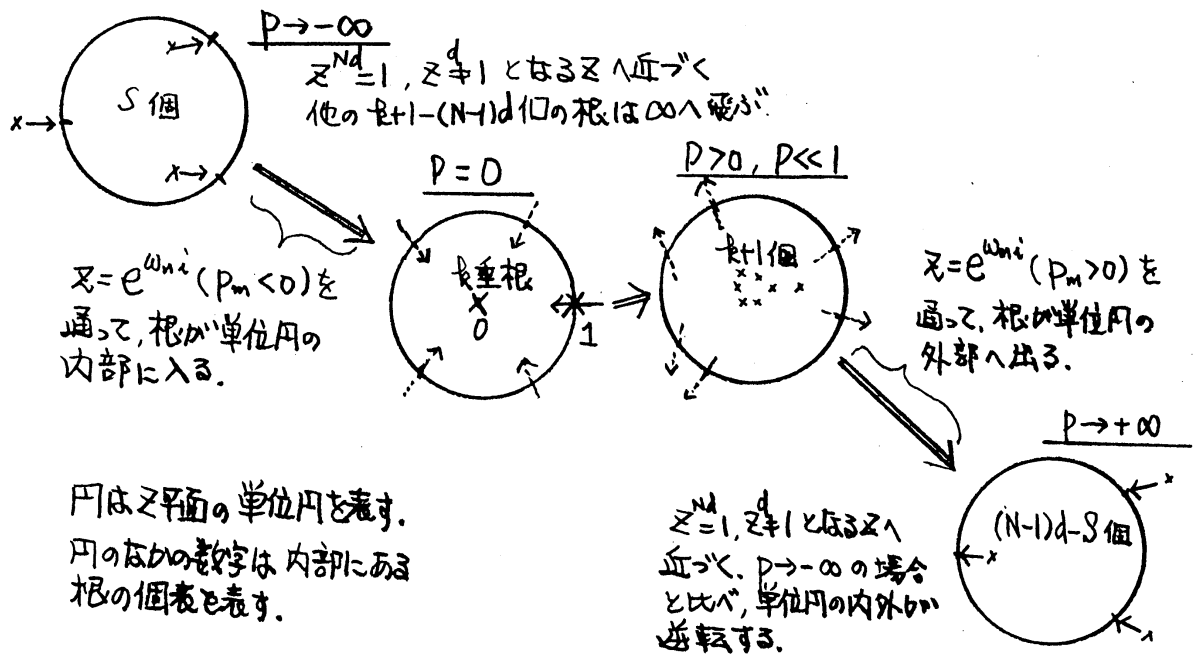 P→-∞
z^{Nd}=1, z^d≠1 となるzへ近づく
他の k+1-(N-1)d 個の根は∞へ飛ぶ.
S個
P=0
k重根
0
1
P>0, P<<1
k+1個
z=e^{ω_m i}(P_m<0)を
通って,根が単位円の
内部に入る.
z=e^{ω_m i}(P_m>0)を
通って,根が単位円の
外部へ出る.
P→+∞
(N-1)d-S個
円はz平面の単位円を表す.
円のなかの数字は内部にある
根の個数を表す.
z^{Nd}=1, z^d≠1となるzへ
近づく. P→-∞の場合
と比べ,単位円の内外が
逆転する.